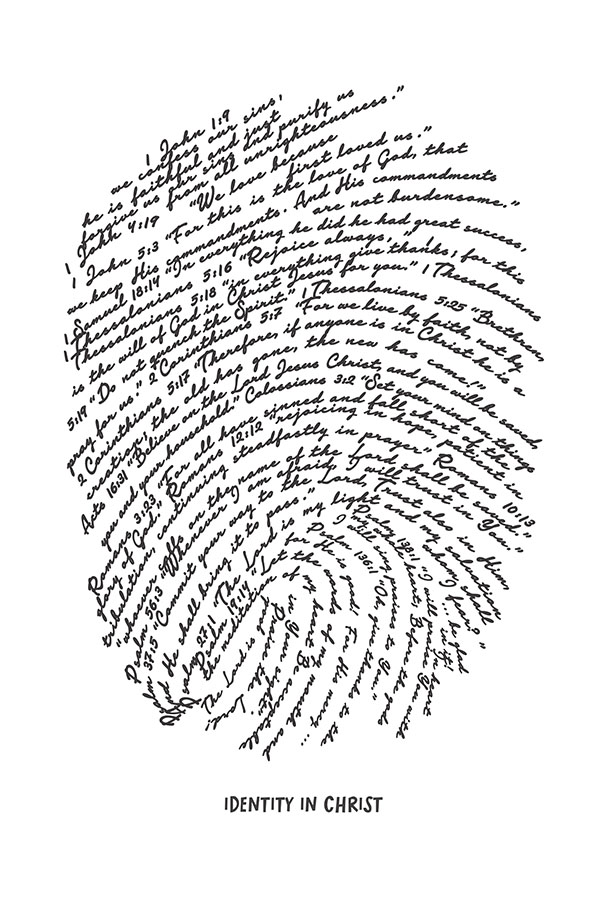 1 John 1:9
we confess our sins,
he is faithful and just
forgive us our sins and purify us
from all unrighteousness."
1 John 4:19 "We love because
first loved us."
1 John 5:3 "For this is the love of God, that
we keep His commandments. And His commandments
are not burdensome."
1 Samuel 18:14 "In everything he did he had great success,
1 Thessalonians 5:16 "Rejoice always,"
1 Thessalonians 5:18 "in everything give thanks; for this
is the will of God in Christ Jesus for you." 1 Thessalonians
5:19 "Do not quench the Spirit." 1 Thessalonians 5:25 "Brethren,
pray for us." 2 Corinthians 5:7 "For we live by faith, not by
2 Corinthians 5:17 "Therefore, if anyone is in Christ he is a
creation, the old has gone, the new has come!"
Acts 16:31 "Believe on the Lord Jesus Christ, and you will be saved,
you and your household." Colossians 3:2 "Set your mind on things
Romans 3:23 "For all have sinned and fall short of the
glory of God." Romans 12:12 "rejoicing in hope, patient in
tribulation, continuing steadfastly in prayer" Romans 10:13
"whoever calls on the name of the Lord shall be saved."
Psalm 56:3 "Whenever I am afraid, I will trust in You."
Psalm 37:5 "Commit your way to the Lord, Trust also in Him,
And He shall bring it to pass."
Psalm 27:1 "The Lord is my light and my salvation
whom shall
I fear?
Psalm 19:14 "Let the words of my mouth and
the meditation of my heart Be acceptable
in Your sight,
Psalm 136:1 "Oh, give thanks to the
The Lord is good
for He is good! For His mercy
Psalm 138:1 "I will praise You with
my heart; Before the gods
I will sing praises to You."
IDENTITY IN CHRIST